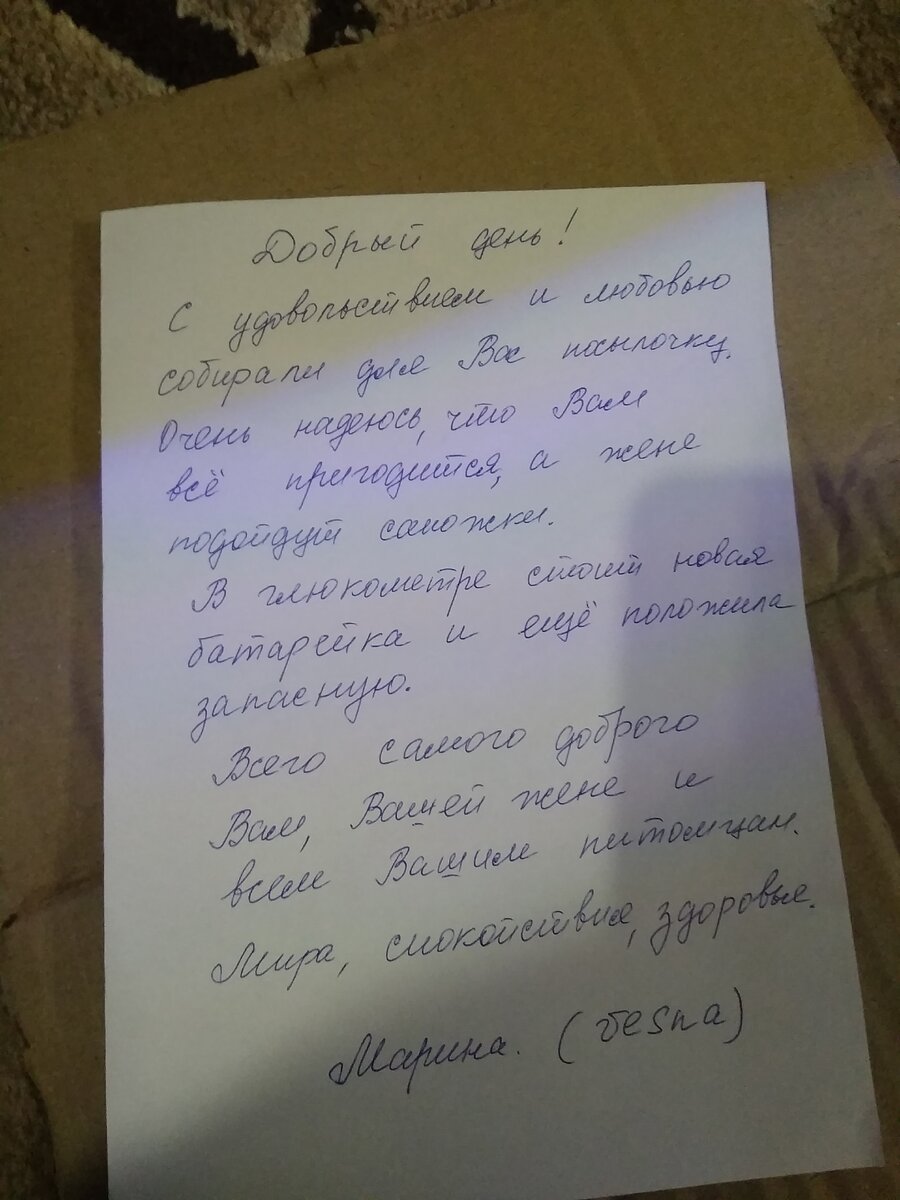 Добрый день!
С удовольствием и любовью
собирали для Вас посылочку.
Очень надеюсь, что Вам
всё пригодится, а жене
подойдут сапожки.
В глюкометре стоит новая
батарейка и ещё положила
запасную.
Всего самого доброго
Вам, Вашей жене и
всем Вашим питомцам.
Мира, спокойствия, здоровья.
Марина. (vesna)